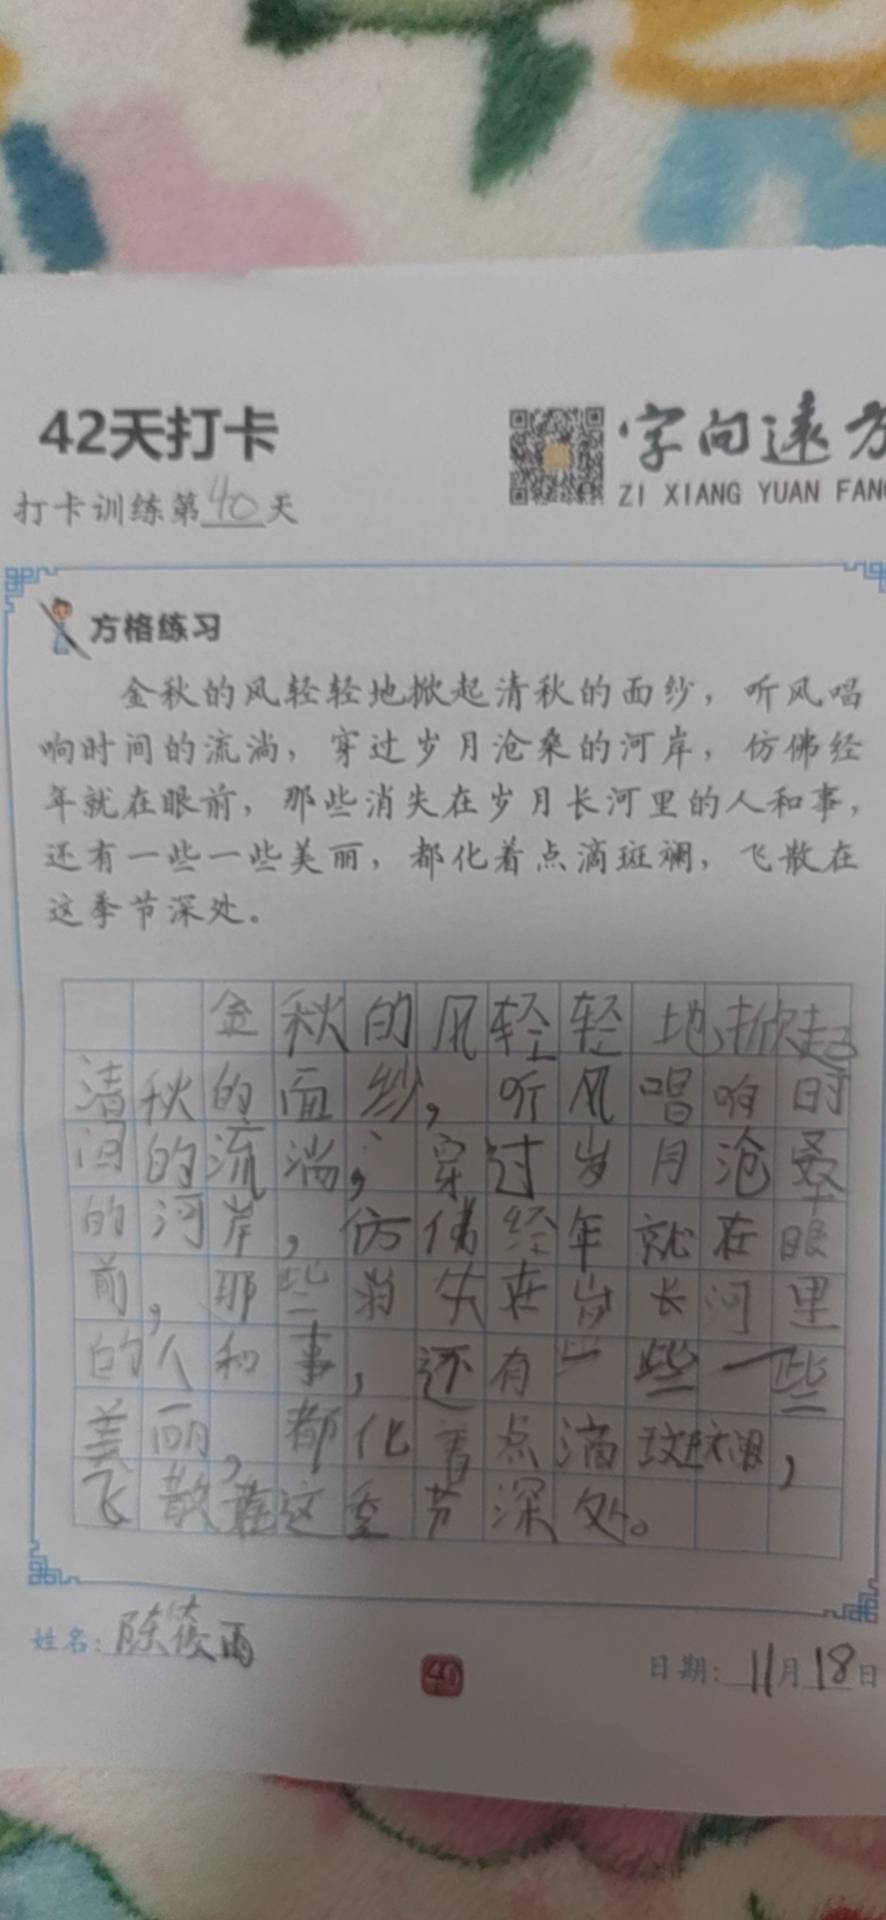 42天打卡
字向远方
ZI XIANG YUAN FANG
打卡训练第40天
方格练习
金秋的风轻轻地掀起清秋的面纱，听风唱
响时间的流淌，穿过岁月沧桑的河岸，仿佛经
年就在眼前，那些消失在岁月长河里的人和事，
还有一些一些美丽，都化着点滴斑斓，飞散在
这季节深处。
金秋的风轻轻地掀起
清秋的面纱，听风唱响时
间的流淌，穿过岁月沧桑
的河岸，仿佛经年就在眼
前，那些消失在岁长河里
的人和事，还有一些一些
美丽，都化着点滴斑斓，
飞散在这季节深处。
姓名：陈筱雨
40
日期：11月18日